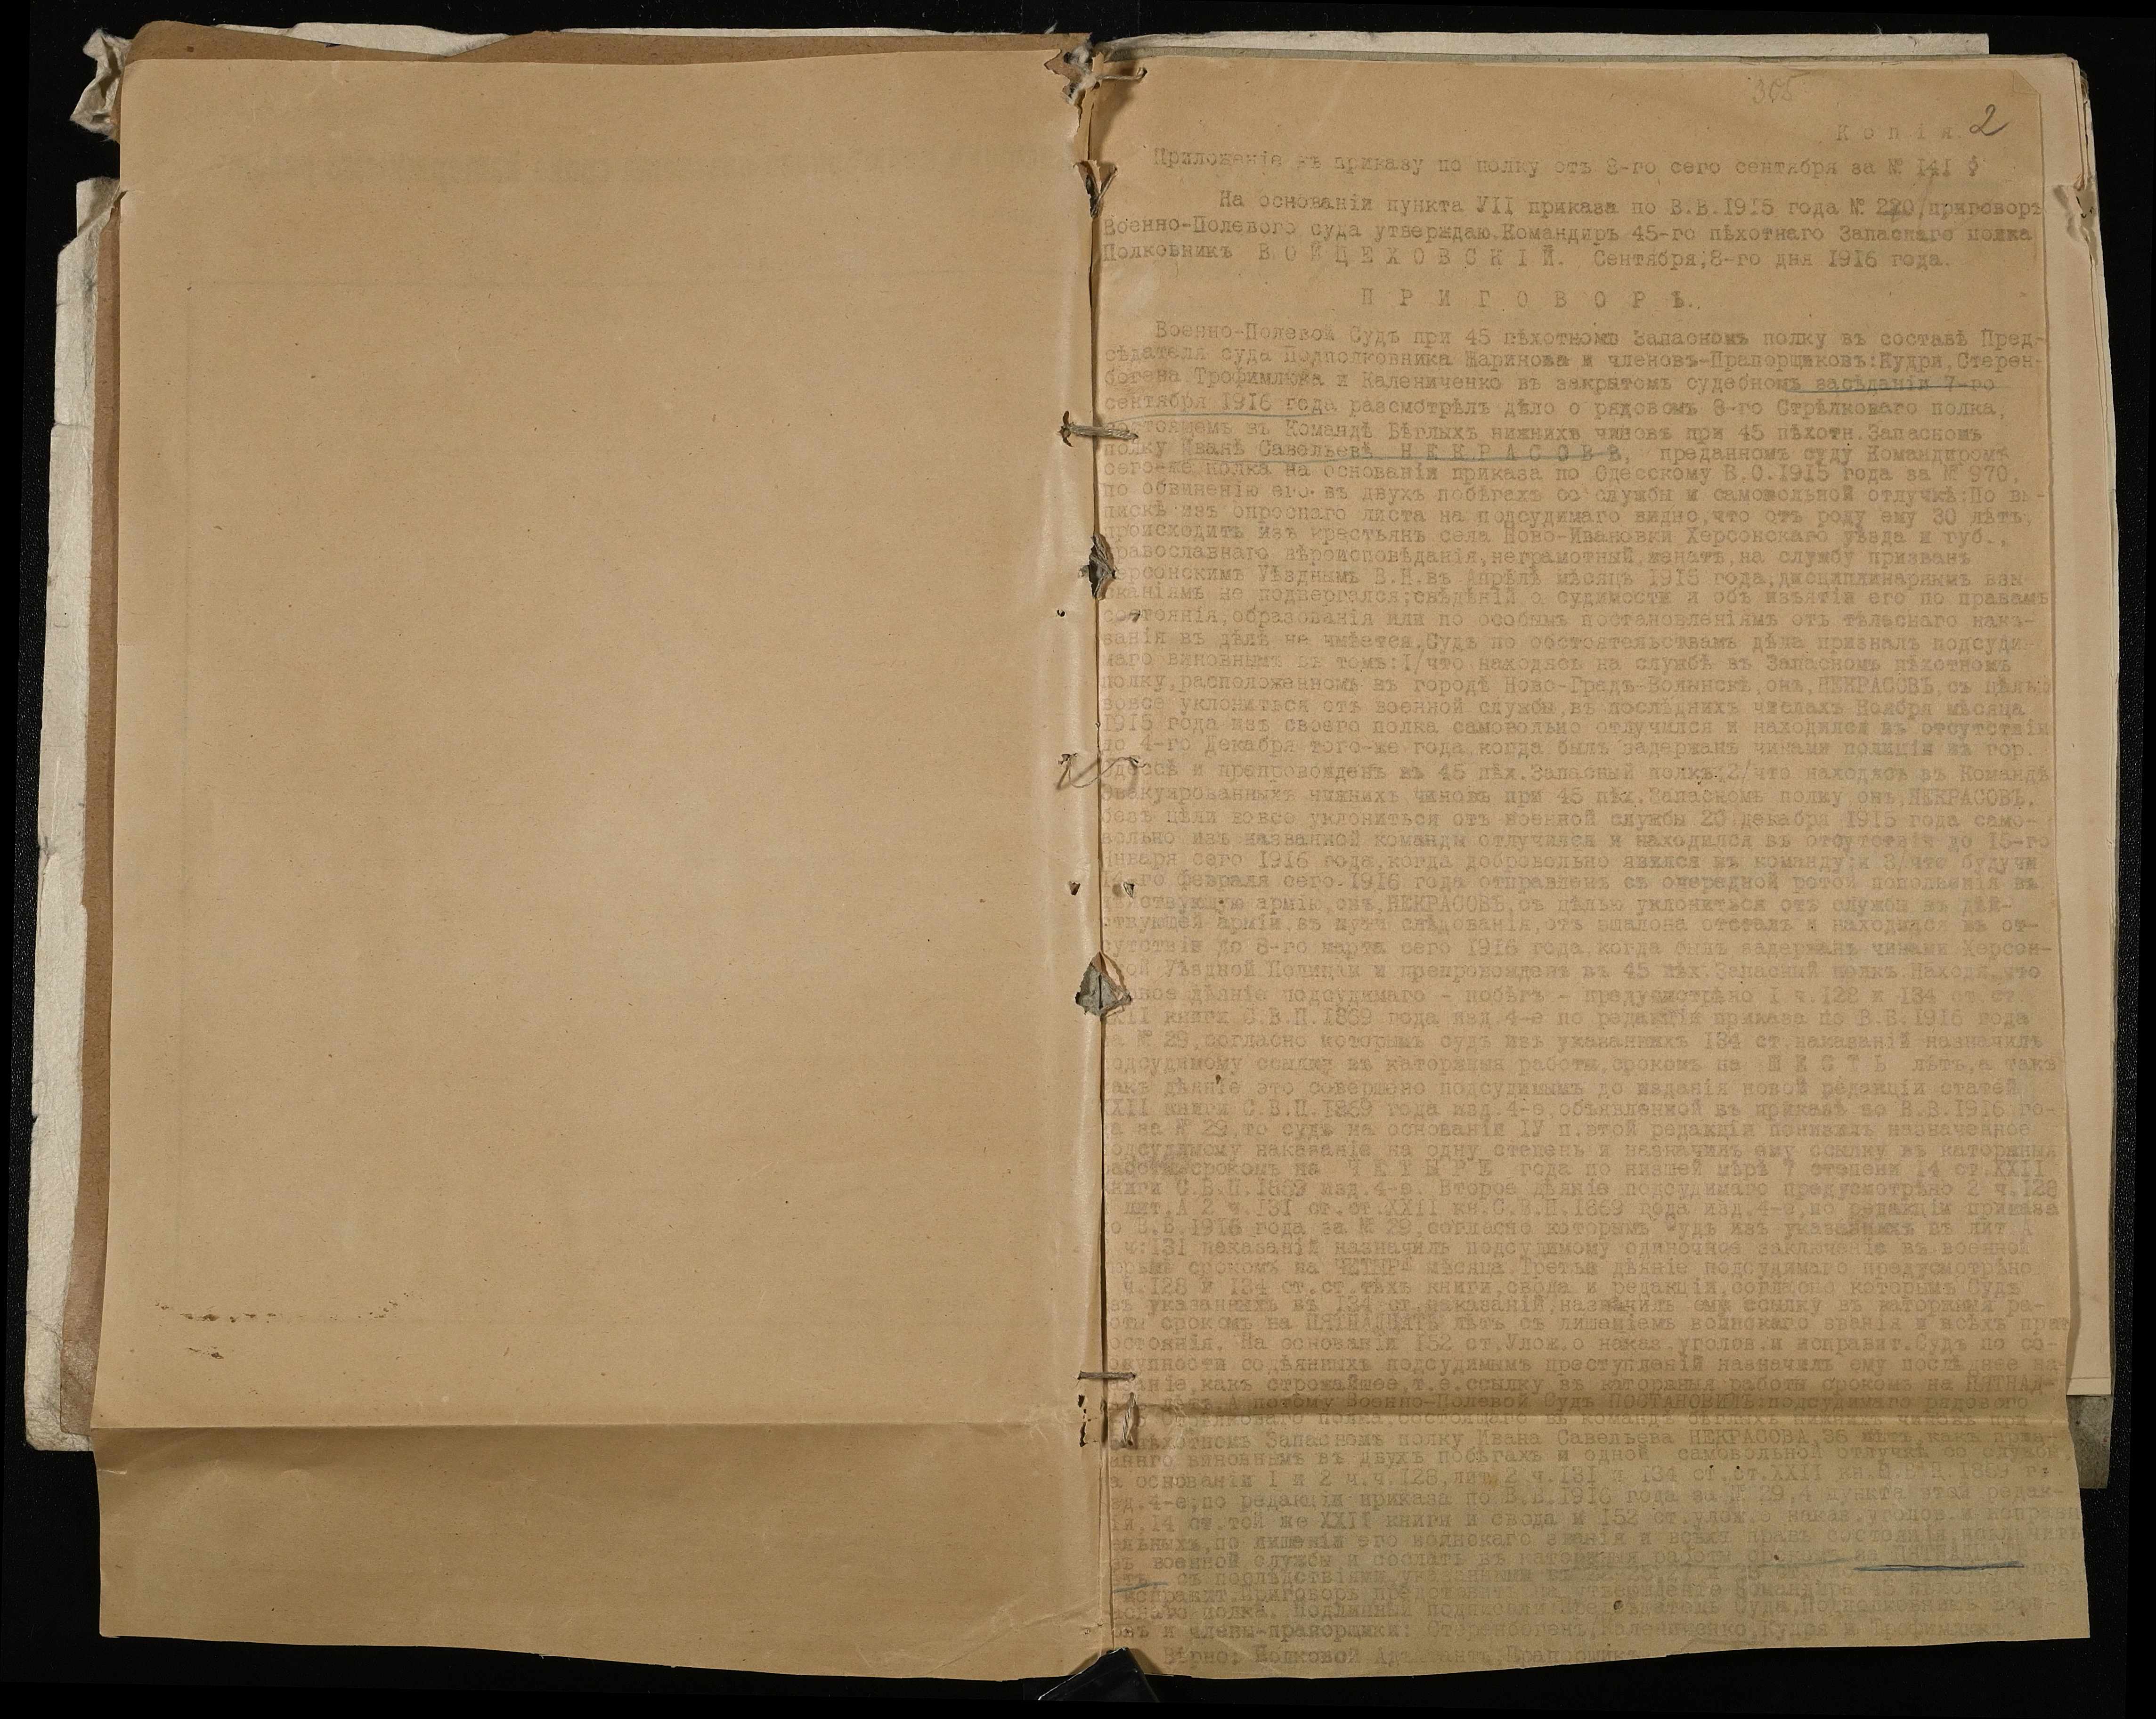 305
2
Копія.
Приложеніе къ приказу по полку отъ 8-го сего сентября за № 141
На основаніи пункта УІІ приказа по В.В.1915 года № 220,приговоръ
Военно-Полевого суда утверждаю.Командиръ 45-го пѣхотнаго Запаснаго полка
Полковникъ ВОЙЦЕХОВСКІЙ. Сентября,8-го дня 1916 года.
ПРИГОВОРЪ.
Военно-Полевой Судъ при 45 пѣхотномъ Запасномъ полку въ составѣ Пред-
сѣдателя суда Подполковника Шаринова и членовъ-Прапорщиковъ:Кудри,Стерен-
богена Трофимлюка и Калениченко въ закрытомъ судебномъ засѣданіи 7-го
сентября 1916 года разсмотрѣлъ дѣло о рядовомъ 8-го Стрѣлковаго полка,
состоящемъ въ Командѣ Бѣглыхъ нижнихъ чиновъ при 45 пѣхотн.Запасномъ
полку Иванѣ Савельевѣ НЕКРАСОВѢ, преданномъ суду Командиромъ
сего-же полка на основаніи приказа по Одесскому В.О.1915 года за № 970,
по обвиненію его въ двухъ побѣгахъ со службы и самовольной отлучкѣ:По вы-
пискѣ изъ опроснаго листа на подсудимаго видно,что отъ роду ему 30 лѣтъ,
происходитъ изъ крестьянъ села Ново-Ивановки Херсонскаго уѣзда и губ.,
православнаго вѣроисповѣданія,неграмотный,женатъ,на службу призванъ
Херсонскимъ Уѣзднымъ В.Н.въ Апрѣлѣ мѣсяцѣ 1915 года,дисциплинарнымъ взы-
сканіямъ не подвергался;свѣдѣній о судимости и объ изъятіи его по правамъ
состоянія,образованія или по особымъ постановленіямъ отъ тѣлеснаго нака-
занія въ дѣлѣ не имѣется.Судъ по обстоятельствамъ дѣла призналъ подсуди-
маго виновнымъ въ томъ:1/что находясь на службѣ въ Запасномъ пѣхотномъ
полку,расположенномъ въ городѣ Ново-Градъ-Волынскѣ,онъ,НЕКРАСОВЪ,съ цѣлью
вовсе уклониться отъ военной службы,въ послѣднихъ числахъ Ноября мѣсяца
1915 года изъ своего полка самовольно отлучился и находился въ отсутствіи
до 4-го Декабря того-же года,когда былъ задержанъ чинами полиціи въ гор.
Одессѣ и препровожденъ въ 45 пѣх.Запасный полкъ;2/что находясь въ Командѣ
Эвакуированныхъ нижнихъ чиновъ при 45 пѣх.Запасномъ полку,онъ,НЕКРАСОВЪ,
безъ цѣли вовсе уклониться отъ военной службы 20 декабря 1915 года само-
вольно изъ названной команды отлучился и находился въ отсутствіи до 15-го
Января сего 1916 года,когда добровольно явился въ команду;и 3/что будучи
14-го февраля сего 1916 года отправленъ съ очередной ротой пополненія въ
дѣйствующую армію,онъ,НЕКРАСОВЪ,съ цѣлью уклониться отъ службы въ дѣй-
ствующей арміи,въ пути слѣдованія,отъ эшалона отсталъ и находился въ от-
сутствіи до 8-го марта сего 1916 года,когда былъ задержанъ чинами Херсон-
ской Уѣздной Полиціи и препровожденъ въ 45 пѣх.Запасный полкъ.Находя,что
первое дѣяніе подсудимаго - побѣгъ - предусмотрѣно 1 ч.128 и 134 ст.ст.
ХХІІ книги С.В.П.1869 года изд.4-е по редакціи приказа по В.В.1916 года
за № 29,согласно которымъ судъ изъ указанныхъ 134 ст.наказаній назначилъ
подсудимому ссылку въ каторжныя работы,срокомъ на ШЕСТЬ лѣтъ,а такъ
какъ дѣяніе это совершено подсудимымъ до изданія новой редакціи статей
ХХІІ книги С.В.П.1869 года изд.4-е,объявленной въ приказѣ по В.В.1916 го-
да за № 29,то судъ на основаніи ІУ п.этой редакціи понизилъ назначенное
подсудимому наказаніе на одну степень и назначилъ ему ссылку въ каторжныя
работы срокомъ на ЧЕТЫРЕ года по низшей мѣрѣ 7 степени 14 ст.ХХІІ
книги С.В.П.1869 изд.4-е. Второе дѣяніе подсудимаго предусмотрѣно 2 ч.128
и лит.А 2 ч.131 ст.ст.ХХІІ кн.С.В.П.1869 года изд.4-е,по редакціи приказа
по В.В.1916 года за № 29,согласно которымъ Судъ изъ указанныхъ въ лит.А
2 ч.131 наказаній назначилъ подсудимому одиночное заключеніе въ военной
тюрьмѣ срокомъ на ЧЕТЫРЕ мѣсяца.Третье дѣяніе подсудимаго предусмотрѣно
ч.128 и 134 ст.ст.тѣхъ книги,свода и редакціи,согласно которымъ Судъ
изъ указанныхъ въ 134 ст.наказаній,назначилъ ему ссылку въ каторжныя ра-
боты срокомъ на ПЯТНАДЦАТЬ лѣтъ съ лишеніемъ воинскаго званія и всѣхъ правъ
состоянія. На основаніи 152 ст.Улож.о наказ.уголов.и исправит.Судъ по со-
вокупности содѣянныхъ подсудимымъ преступленій назначилъ ему послѣднее на-
казаніе,какъ строжайшее,т.е.ссылку въ каторжныя работы срокомъ на ПЯТНАД-
лѣтъ.А потому Военно-Полевой Судъ ПОСТАНОВИЛЪ:подсудимаго рядового
Стрѣлковаго полка,состоящаго въ командѣ бѣглыхъ нижнихъ чиновъ при
пѣхотномъ Запасномъ полку Ивана Савельева НЕКРАСОВА,36 лѣтъ,какъ приз-
аннго виновнымъ въ двухъ побѣгахъ и одной самовольной отлучкѣ со службы,
на основаніи 1 и 2 ч.ч.128,лит 2 ч.131 и 134 ст.ст.ХХІІ кн.С.В.П.1869 г.
изд.4-е,по редакціи приказа по В.В.1916 года за № 29,4 пункта этой редак-
ціи,14 ст.той же ХХІІ книги и свода и 152 ст.улож.о наказ.уголов.и исправи
тельныхъ,по лишеніи его воинскаго званія и всѣхъ правъ состоянія,исключить
изъ военной службы и сослать въ каторжныя работы срокомъ на ПЯТНАДЦАТЬ
лѣтъ съ послѣдствіями,указанными въ
исправит.Приговоръ представить на утвержденіе Командира 45 пѣхотнаго
Запаснаго полка. Подлинный подписали:Предсѣдатель Суда,Подполковникъ Шари-
новъ и члены-прапорщики: Стеренбогенъ,Калениченко,Кудря и Трофимлюкъ.
Вѣрно: Полковой Адъютантъ,Прапорщикъ